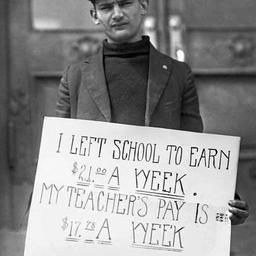 I LEFT SCHOOL TO EARN
$21.00 A WEEK.
MY TEACHER'S PAY IS
$17.78 A WEEK